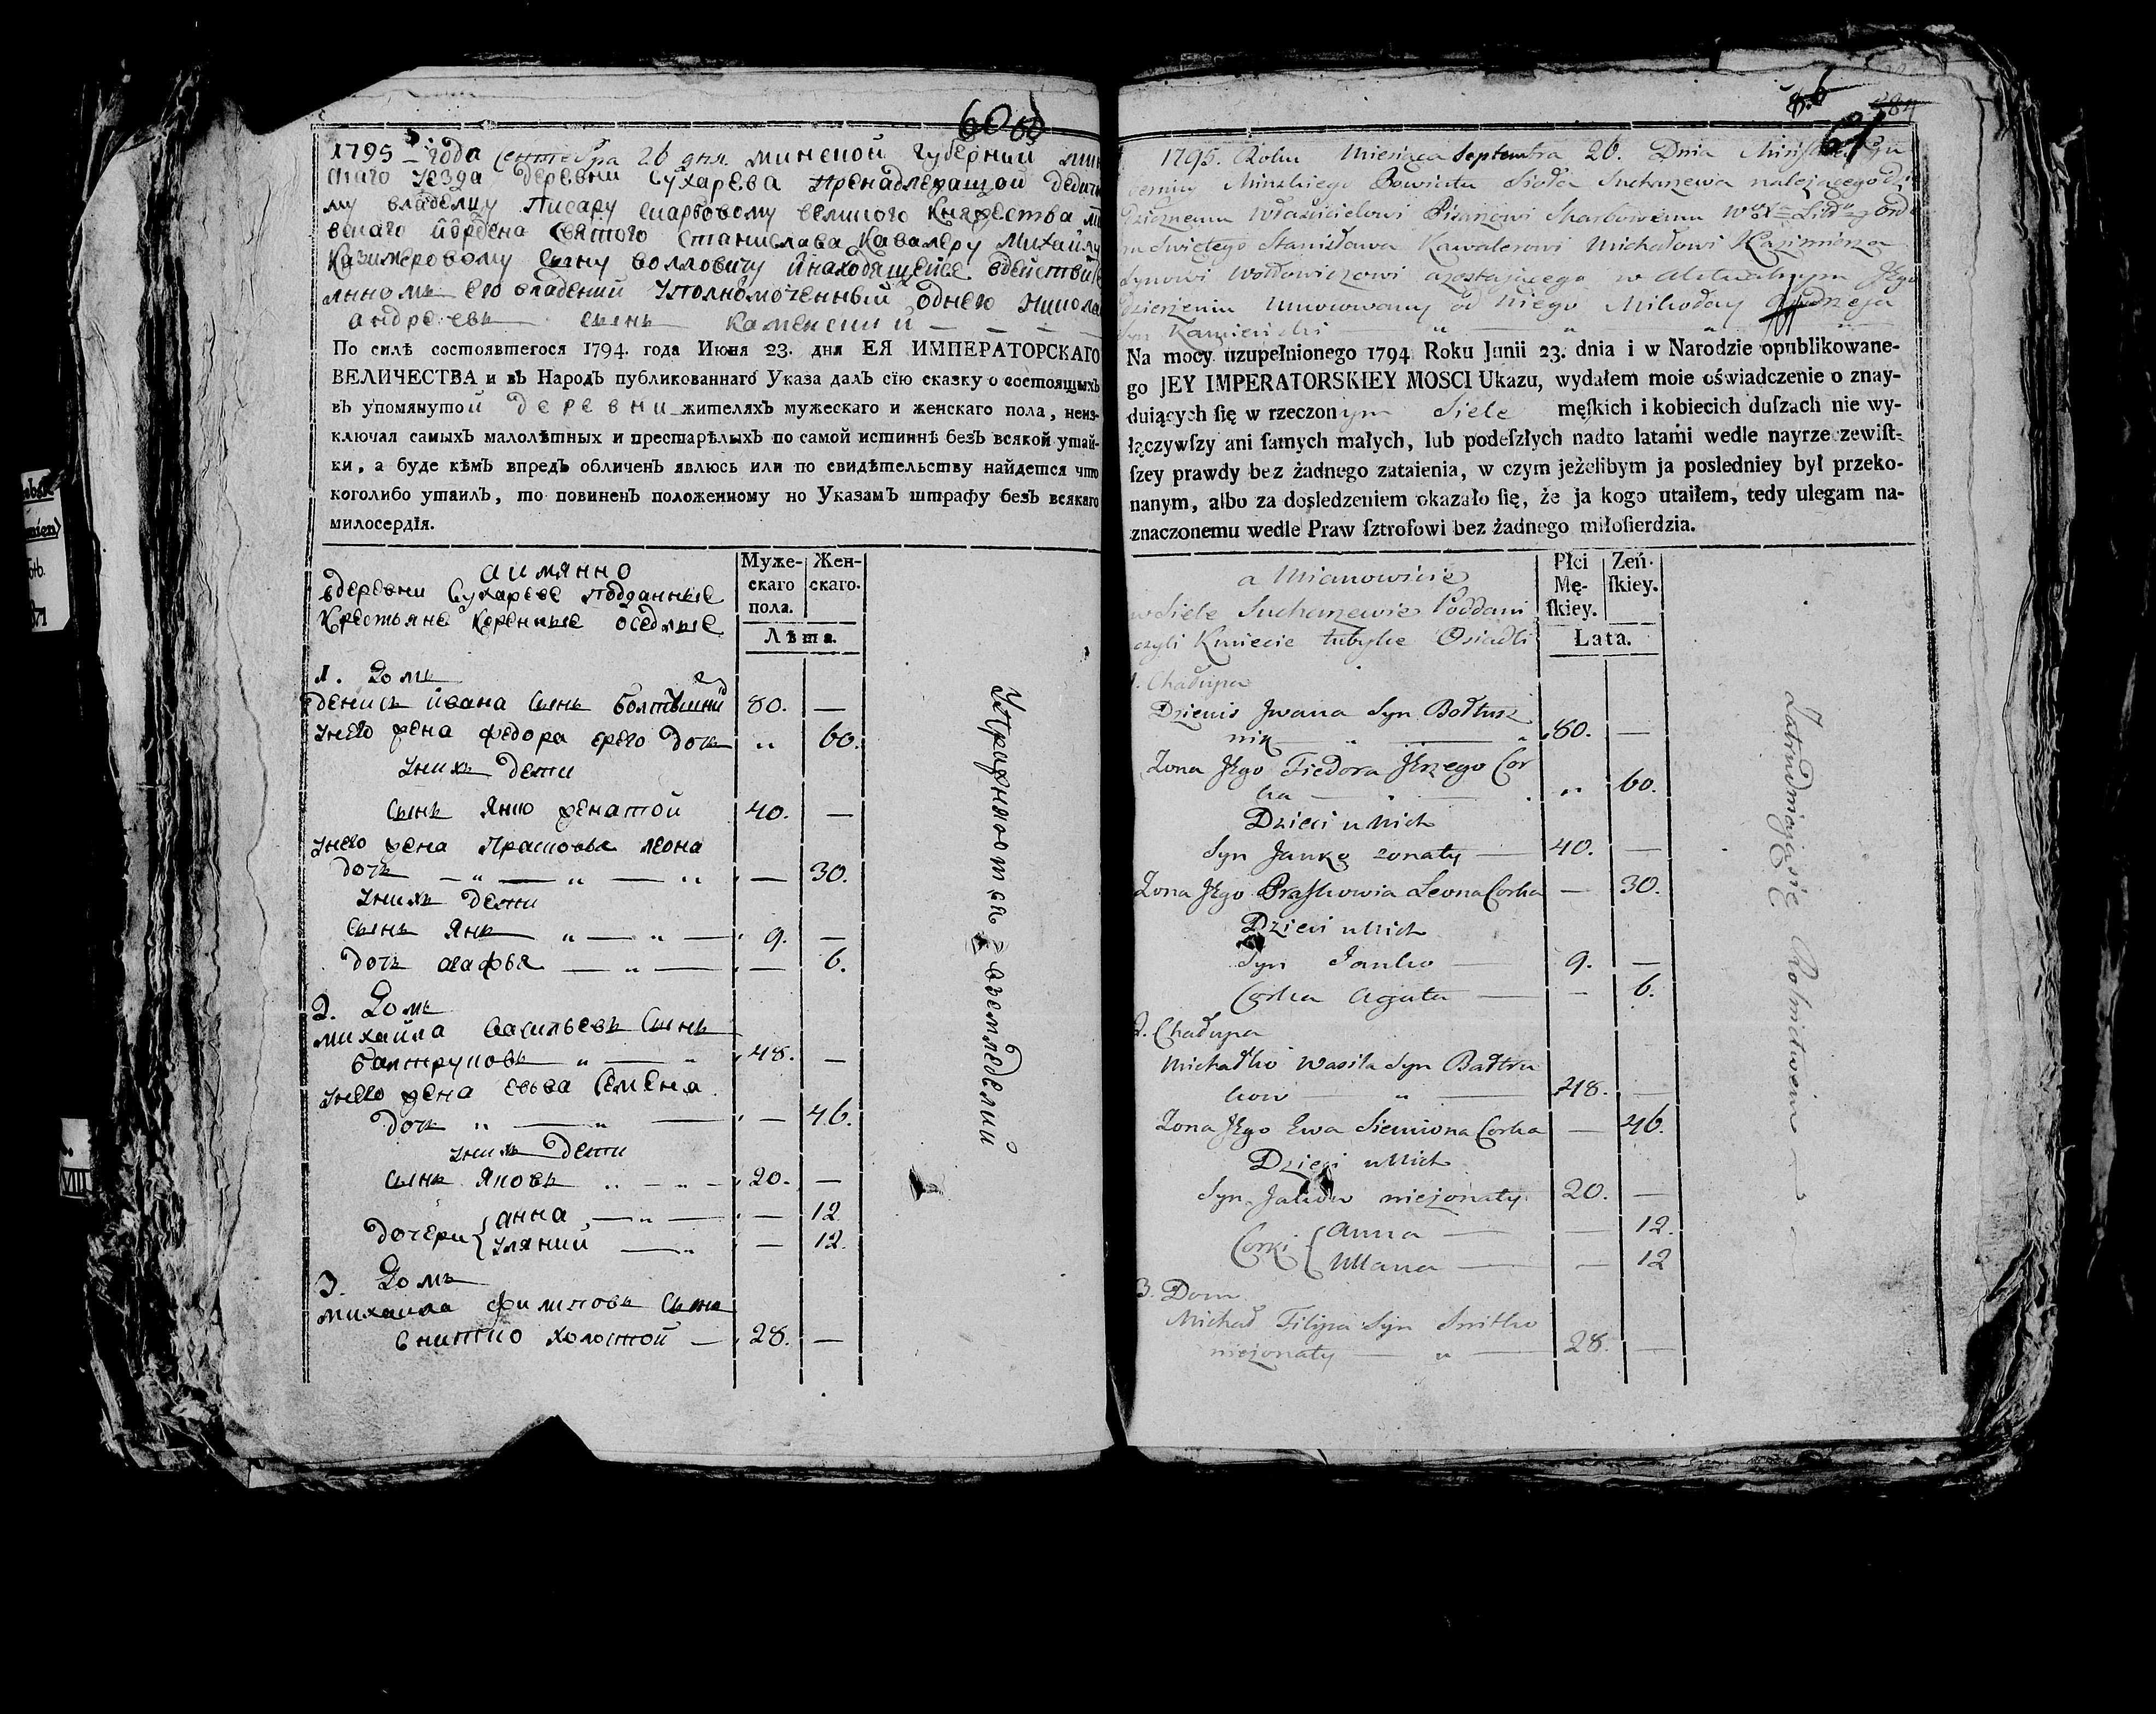 60 об
1795 года Сентебра 26 дня минской губернии мин
скаго уезда деревни Сухарева пренадлежащой дедич
му владелцу Писару скарбовому великого Княжества
вскаго й ордена святого Станислава Кавалеру Михайлу
Казимеровому сыну волловичу й находящейсе вдействите
лномъ его владений уполномоченный однего николай
андреевъ сынъ каменский
По силѣ состоявшегося 1794. года Июня 23. дня ЕЯ ИМПЕРАТОРСКАГО
ВЕЛИЧЕСТВА и въ Народъ публикованнаго Указа далъ сїю сказку о состоящихъ
въ упомянутой деревни жителяхъ мужескаго и женскаго пола, неиз-
ключая самыхъ малолѣтныхъ и престарѣлыхъ по самой истиннѣ безъ всякой утай-
ки, а буде кѣмъ впредь обличенъ явлюсь или по свидѣтельству найдется что
коголибо утаилъ, то повиненъ положенному но Указамъ штрафу безъ всякаго
милосердїя.
аимянно
вдеревни Сухареве подданные
Крестьяне Коренные оседлые
Муже-скаго пола. Жен-скаго.
Лѣта.
1. Домъ
денисъ йвана сынъ болтвшникъ 80. —
унего жена федора ерего дочъ " 60.
унихъ дети
сынъ янко женатой 40. —
унего жена Прасковья леона
дочъ — " — " — " — 30.
унихъ дети
сынъ янъ " — " — 9. —
дочъ агафья — " — — 6.
2. Домъ
михайла васильевъ сынъ
балтруковъ " — " 48. —
унего жена евва семена
дочъ " — " — — 46.
унихъ дети
сынъ яковъ " — " — 20. —
дочери { анна — " — — 12.
уляний — " — 12.
3. Домъ
михаила филиповъ сынъ
снитко холостой — 28. —
Упражняются вземледелии
86
61
1795. Roku Miesiąca Septembra 26. Dnia
Minskiego Powiatu Sioła Sucharzewa należącego
dzicznemu Właścicielowi Pisarzowi Skarbowemu
Swiętego Stanisława Kawalerowi Michałowi Kazimierza
Synowi Wołłowiczowi zostającego w aktualnym Jego
dzierżeniu umocowany od niego Mikołay Jędrzeja
Syn Kamienski
Na mocy uzupełnionego 1794 Roku Junii 23. dnia i w Narodzie opublikowane-
go JEY IMPERATORSKIEY MOSCI Ukazu, wydałem moie oświadczenie o znay-
duiących ſię w rzeczonym Siele męſkich i kobiecich duſzach nie wy-
łączywſzy ani ſamych małych, lub podeſzłych nadto latami wedle nayrzeczewiſt-
ſzey prawdy bez żadnego zataienia, w czym jeżelibym ja posledniey był przeko-
nanym, albo za dosledzeniem okazało ſię, że ja kogo utaiłem, tedy ulegam na-
znaczonemu wedle Praw ſztrofowi bez żadnego miłoſierdzia.
a Mianowicie
w Siele Sucharzewie Poddani
czyli Kmiecie tubylce Osiadli
Płci Mę-ſkiey. Zeń-ſkiey.
Lata.
1. Chałupa
Dzienis Jwana Syn Bołtusz
nik " — " 80. —
Zona Jego Fiedora Jerzego Cor
ka — " 60.
Dzieci u Nich
Syn Janko zonaty — 40. —
Zona Jego Praskowia Leona Corka — 30.
Dzieci u Nich
Syn Janko — 9. —
Corka Agata — — 6.
2. Chałupa
Michałko Wasila Syn Bałtru
kow — " — 48. —
Zona Jego Ewa Siemiona Corka — 46.
Dzieci u Nich
Syn Jakow nieżonaty 20. —
Corki { Anna — — 12.
Ullana — — 12
3. Dom
Michał Filipa Syn Snitko
nieżonaty — " — 28. —
Zatrudniają się Rolnictwem